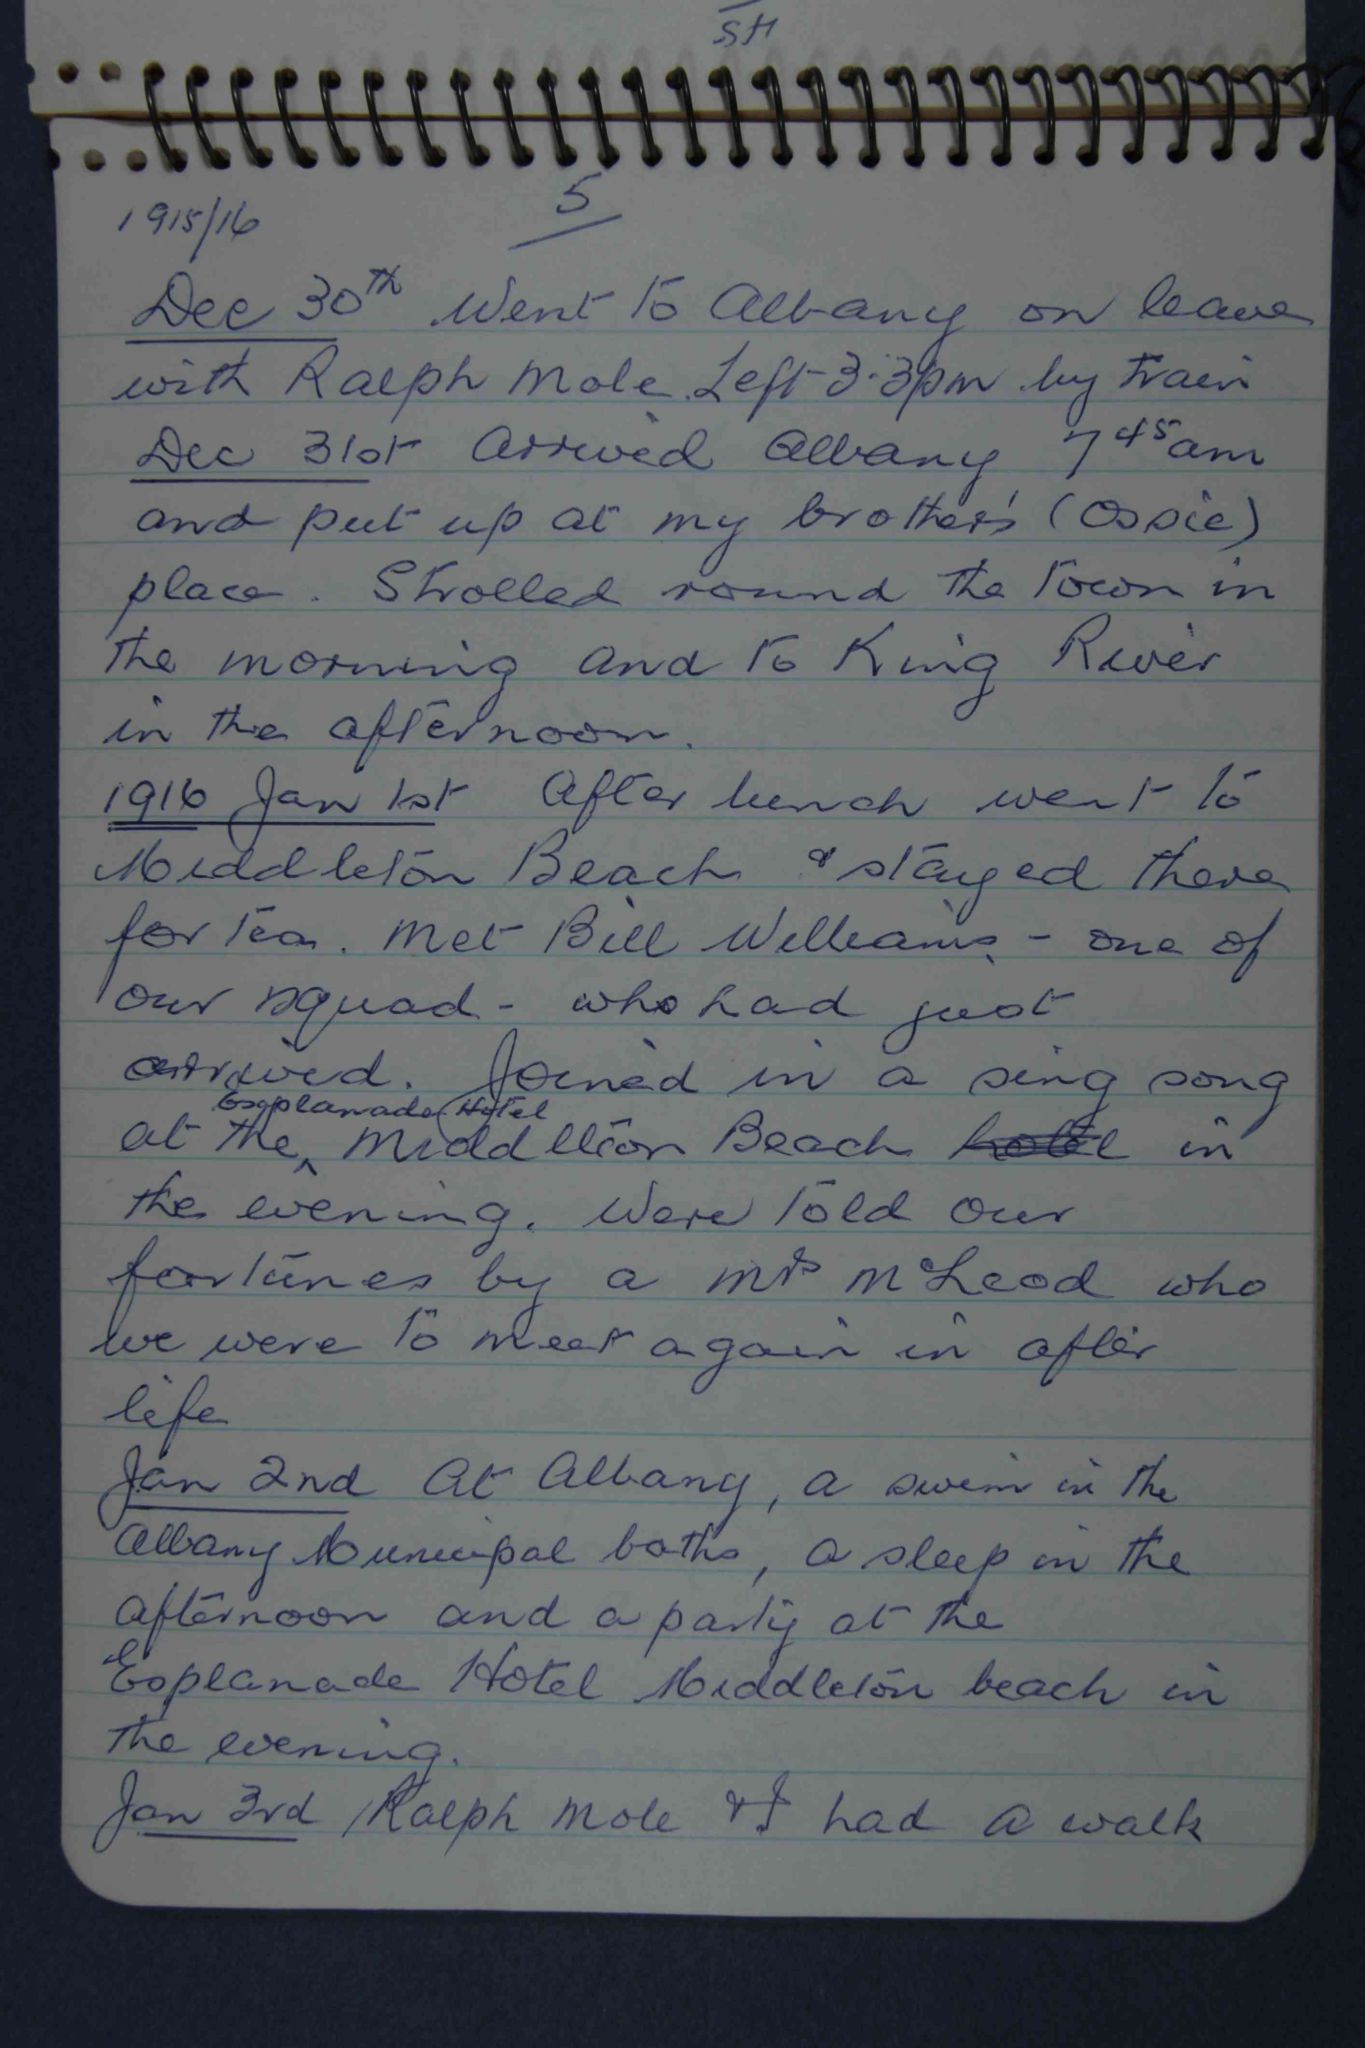 5
1915/16
Dec 30th Went to Albany on leave
with Ralph Mole. Left 3.3pm by train
Dec 31st Arrived Albany 7 45 am
and put up at my brother's (Ossie)
place. Strolled round the town in
the morning and to King River
in the afternoon.
1916 Jan 1st After lunch went to
Middleton Beach & stayed there
for tea. Met Bill Williams - one of
our squad - who had just
arrived. Joined in a sing song
Esplanade Hotel
at the Middleton Beach hotel in
the evening. Were told our
fortunes by a Mrs McLeod who
we were to meet again in after
life
Jan 2nd At Albany, a swim in the
Albany Municipal baths, a sleep in the
afternoon and a party at the
Esplanade Hotel Middleton beach in
the evening.
Jan 3rd Ralph Mole & I had a walk